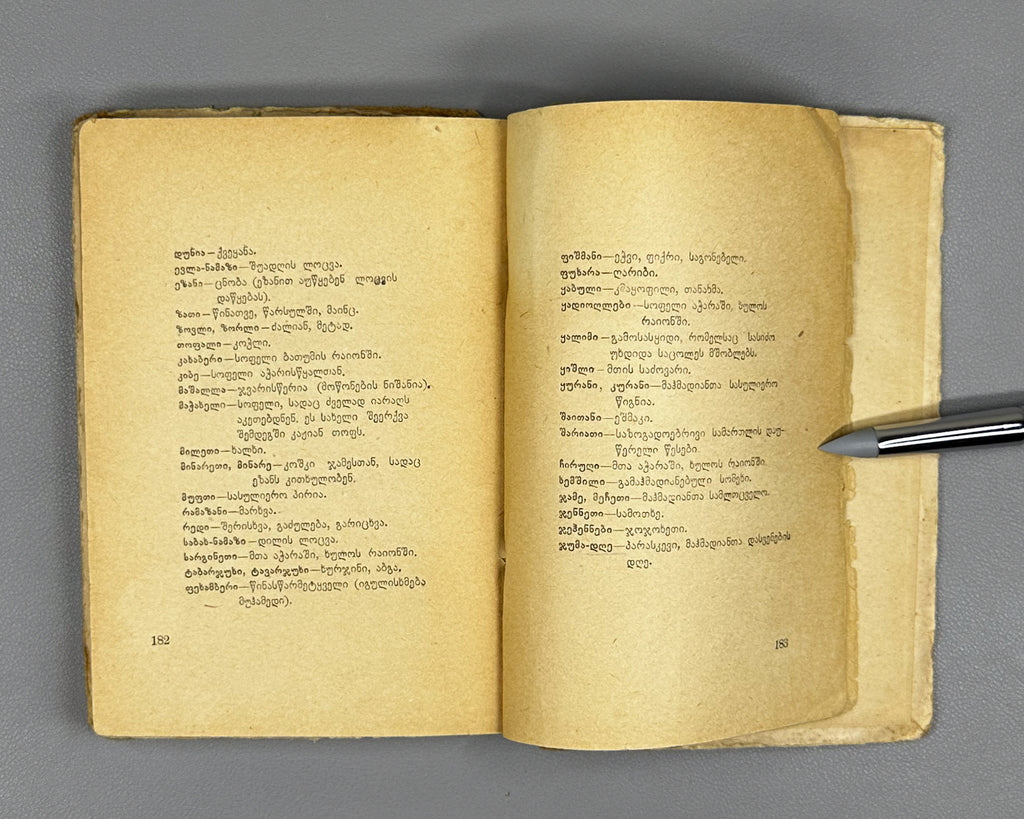 დუნია — ქვეყანა.
ევლა-ნამაზი — შუადღის ლოცვა.
ეზანი — ცნობა (ეზანით აუწყებენ ლოცვის
დაწყებას).
ზათი — წინათვე, წარსულში, მაინც.
ზოვლი, ზორლი — ძალიან, მეტად.
თოფალი — კოჭლი.
კახაბერი — სოფელი ბათუმის რაიონში.
კიბე — სოფელი აჭარისწყალთან.
მაშალლა — ჯვარისწერია (მოწონების ნიშანია).
მაჭახელი — სოფელი, სადაც ძველად იარაღს
აკეთებდნენ. ეს სახელი შეერქვა
შემდეგში კაჟიან თოფს.
მილეთი — ხალხი.
მინარეთი, მინარე — კოშკი ჯამესთან, სადაც
ეზანს კითხულობენ.
მუფთი — სასულიერო პირია.
რამაზანი — მარხვა.
რედი — შერისხვა, გაძულება, გარიცხვა.
საბახ-ნამაზი — დილის ლოცვა.
სარგინეთი — მთა აჭარაში, ხულოს რაიონში.
ტაბარჯუხი, ტავარჯუხი — ხურჯინი, აბგა.
ფეხამბერი — წინასწარმეტყველი (იგულისხმება
მუჰამედი).
182
ფიშმანი — ეჭვი, ფიქრი, საგონებელი.
ფუხარა — ღარიბი.
ყაბული — კმაყოფილი, თანახმა.
ყადიოღლები — სოფელი აჭარაში, ხულოს
რაიონში.
ყალიმი — გამოსასყიდი, რომელსაც სასიძო
უხდიდა საცოლეს მშობლებს.
ყიშლი — მთის საძოვარი.
ყურანი, კურანი — მაჰმადიანთა სასულიერო
წიგნია.
შაითანი — ეშმაკი.
შარიათი — საზოგადოებრივი სამართლის დაუ-
წერელი წესები.
ჩირუღი — მთა აჭარაში, ხულოს რაიონში.
ხემშილი — გამაჰმადიანებული სომეხი.
ჯამე, მეჩეთი — მაჰმადიანთა სამლოცველო.
ჯენნეთი — სამოთხე.
ჯეჰენნები — ჯოჯოხეთი.
ჯუმა-დღე — პარასკევი, მაჰმადიანთა დასვენების
დღე.
183